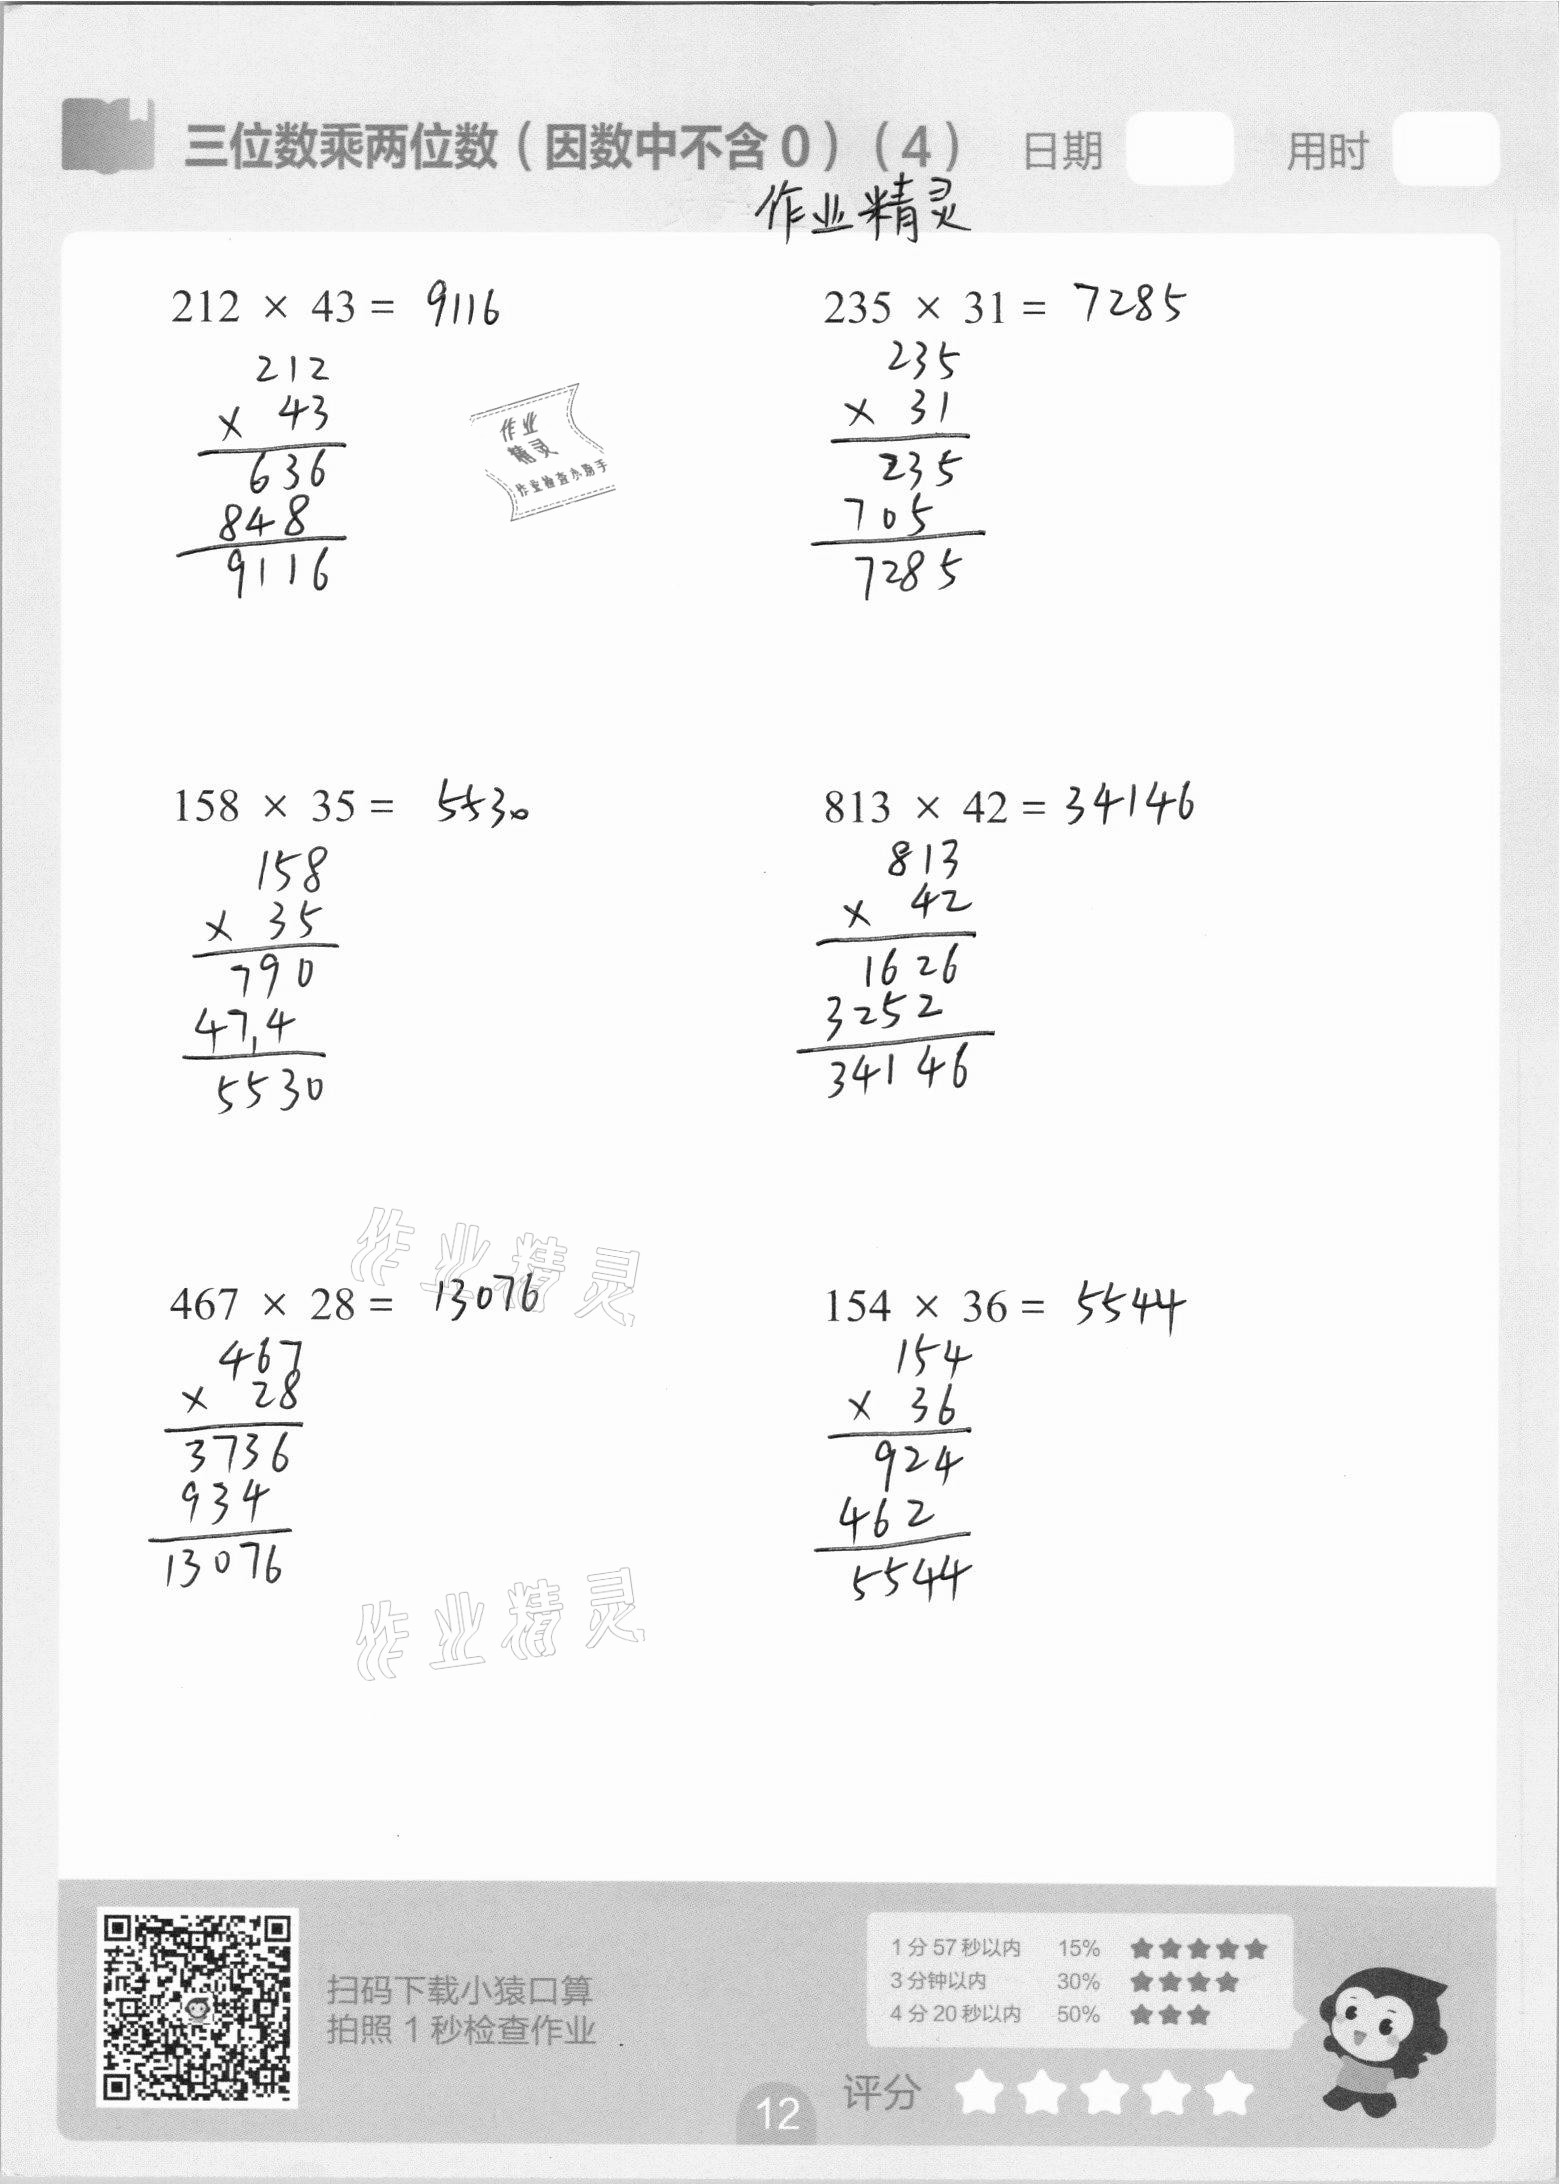 三位数乘两位数（因数中不含0）（4） 日期 用时
作业精灵
212 × 43 = 9116
235 × 31 = 7285
212
× 43
636
848
9116
235
× 31
235
705
7285
作业
精灵
作业检查小助手
158 × 35 = 5530
813 × 42 = 34146
158
× 35
790
474
5530
813
× 42
1626
3252
34146
作业精灵
467 × 28 = 13076
154 × 36 = 5544
467
× 28
3736
934
13076
154
× 36
924
462
5544
作业精灵
扫码下载小猿口算
拍照1秒检查作业
1分57秒以内 15% ★★★★★
3分钟以内 30% ★★★★
4分20秒以内 50% ★★★
评分
12